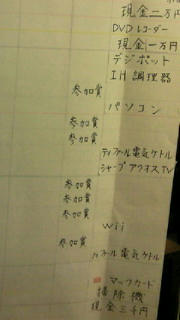 現金二万円
DVDレコーダー
現金一万円
デジポット
IH調理器
参加賞
パソコン
参加賞
参加賞
ティファール電気ケトル
シャープアクオスTV
参加賞
参加賞
参加賞
Wii
参加賞
ティファール電気ケトル
マックカード
掃除機
現金三千円